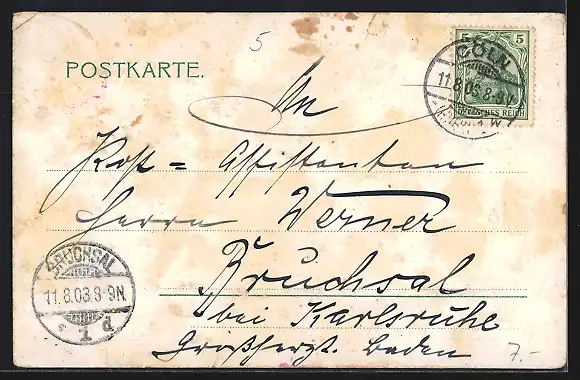 5
POSTKARTE.
5 5
CÖLN
11.8.03.8-9V
DEUTSCHES REICH
An
Post = Assistenten
Herrn Werner
Bruchsal
bei Karlsruhe
Großherzt. Baden
BRUCHSAL
11.8.03.8-9N.
* 1 d
7.-